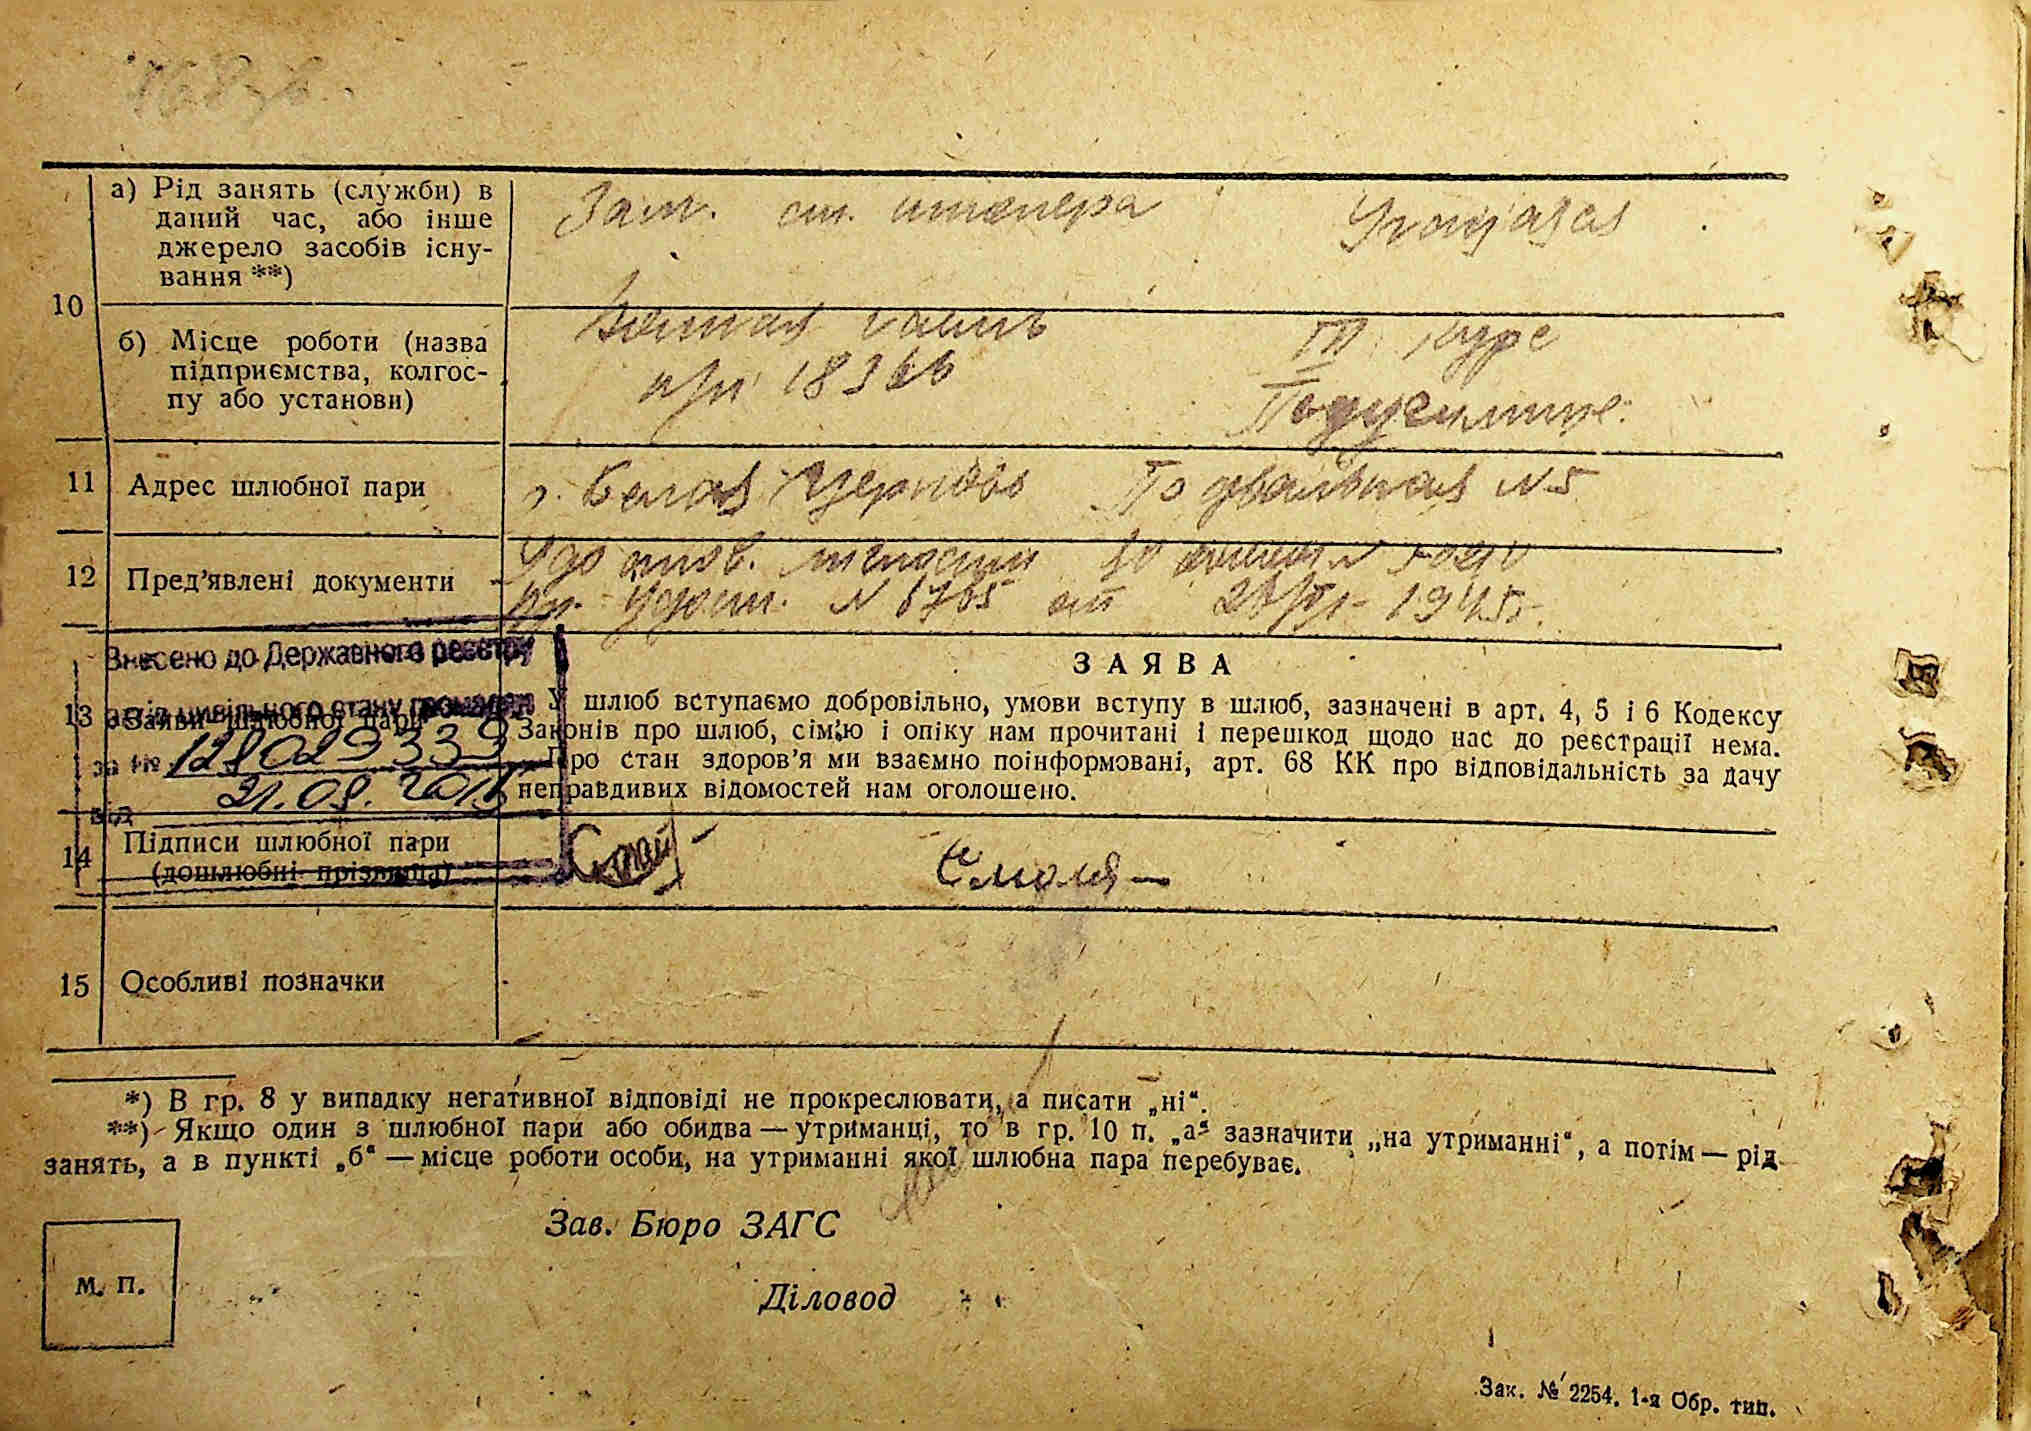 10
а) Рід занять (служби) в
даний час, або інше
джерело засобів існу-
вання **)
Зам. ст. инженера
Учащаяся
б) Місце роботи (назва
підприємства, колгос-
пу або установи)
Военная часть
п/п
IV курс
Педучилище
11 Адрес шлюбної пари
г. Белая Церковь Подвальная №5
12 Пред'явлені документи
Удостов. личности
Удост. № 6765 от 1945 г.
Внесено до Державного реєстру
актів цивільного стану громадян
за № 128029339
від 21.09.
13 Заяви шлюбної пари
ЗАЯВА
У шлюб вступаємо добровільно, умови вступу в шлюб, зазначені в арт. 4, 5 і 6 Кодексу
Законів про шлюб, сім'ю і опіку нам прочитані і перешкод щодо нас до реєстрації нема.
Про стан здоров'я ми взаємно поінформовані, арт. 68 КК про відповідальність за дачу
неправдивих відомостей нам оголошено.
14 Підписи шлюбної пари
(дошлюбні прізвища)
15 Особливі позначки
*) В гр. 8 у випадку негативної відповіді не прокреслювати, а писати „ні“.
**) Якщо один з шлюбної пари або обидва — утриманці, то в гр. 10 п. „а“ зазначити „на утриманні“, а потім — рід
занять, а в пункті „б“ — місце роботи особи, на утриманні якої шлюбна пара перебуває.
Зав. Бюро ЗАГС
М. П.
Діловод
Зак. № 2254. 1-я Обр. тип.